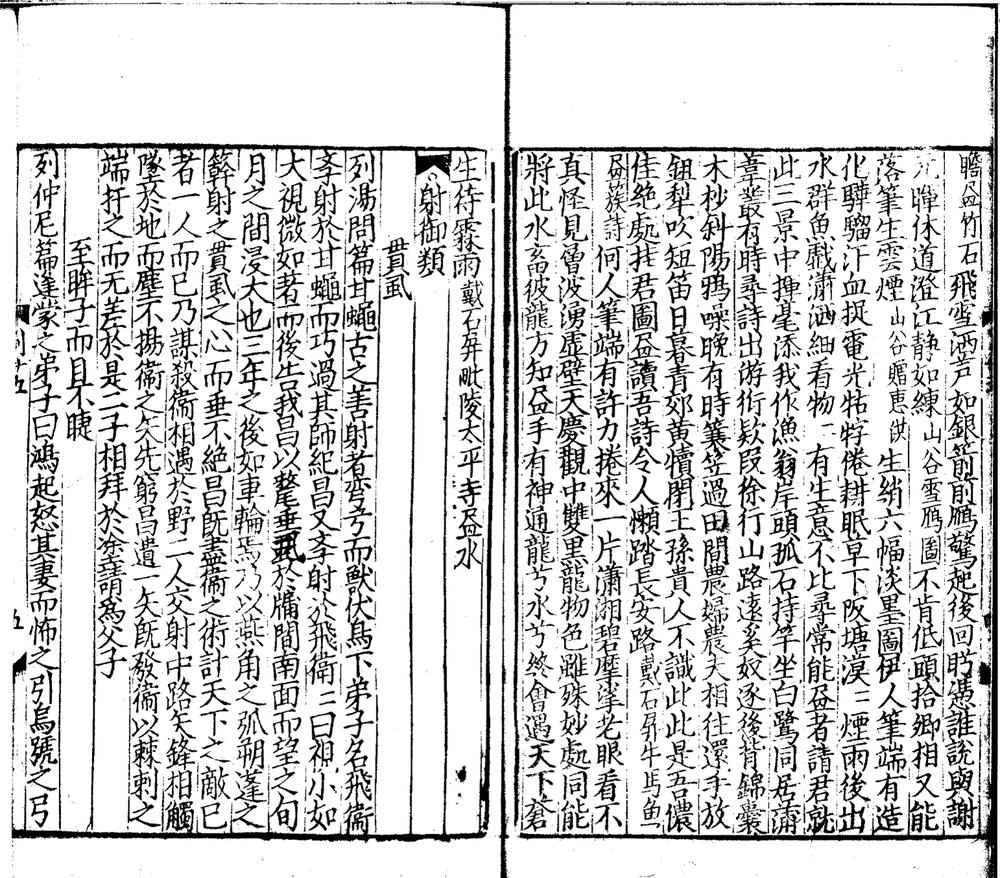 瞻畫竹石飛空洒芦如銀箭前鴈驚起後回眄憑誰說與謝
元暉休道澄江静如練山谷雪鴈圖不肯低頭拾卿相又能
落筆生雲煙山谷贈惠洪生綃六幅淡墨圖伊人筆端有造
化驊騮汗血捉電光牯牸倦耕眠草下阪塘漠〻煙雨後出
水群魚戲瀟洒細看物〻有生意不比尋常能畫者請君就
此三景中揮毫添我作漁翁岸頭孤石持竿坐白鷺同居蒲
葦叢有時尋詩出游衍欵段徐行山路遠奚奴逐後背錦囊
木杪斜陽鴉噪晚有時簑笠過田間農婦農夫相往還手放
鈕犁吹短笛日暮青郊黄犢閑王孫貴人不識此此是吾儂
佳絶處拄君圖畫讀吾詩令人懶踏長安路戴石屏牛馬魚
畫蔟詩何人筆端有許力捲來一片瀟湘碧摩挲老眼看不
真怪見層波湧虚壁天慶觀中雙黒龍物色雖殊妙處同能
將此水畜彼龍方知畫手有神通龍兮水兮終會遇天下蒼
生待霖雨戴石屏毗陵太平寺畫水
射御類
貫虱
列湯問篇甘蠅古之善射者彎弓而獸伏鳥下弟子名飛衞
孝射於甘蠅而巧過其師紀昌又孝射於飛衞〻曰視小如
大視微如著而後告我昌以氂垂虱於牖間南面而望之旬
月之間浸大也三年之後如車輪焉乃以燕角之弧朔蓬之
簳射之貫虱之心而垂不絶昌旣盡衞之術計天下之敵已
者一人而已乃謀殺衞相遇於野二人交射中路矢鋒相觸
墜於地而塵不揚衞之矢先窮昌遺一矢旣發衞以棘刺之
端扞之而无差於是二子相拜於凃請爲父子
至眸子而目不睫
列仲尼篇逢蒙之弟子曰鴻超怒其妻而怖之引烏號之弓